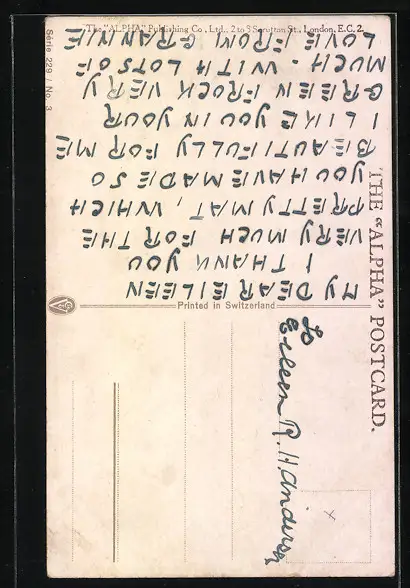 THE "ALPHA" POSTCARD.
MY DEAR EILEEN
I THANK YOU
VERY MUCH FOR THE
PRETTY MAT, WHICH
YOU HAVE MADE SO
BEAUTIFULLY FOR ME
I LIKE YOU IN YOUR
GREEN FROCK VERY
MUCH - WITH LOTS OF
LOVE FROM GRANNIE
To
Eileen R. H Anderson
Printed in Switzerland
The "ALPHA" Publishing Co., Ltd., 2 to 5 Scrutton St., London, E.C. 2.
Série 229 / No. 3
x